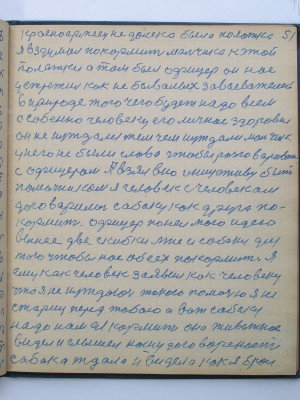 красноармеец не далеко была полотка 51
я вздумал покормить мальчика к этой
полятки а там был офицер он нас
встретил как не бывалых завоевателей
в природе того чего будет надо всем
особенно человеку его личное здоровия
он не нуждался тем чем нуждался мальчик
у него не были слова чтобы разговаривать
с офицером я взял свою инициативу быть
человек с человекам
договорились собаку как друга по-
кормить. офицер понял мою идею
вынес две скибки мне и собаки для
того чтобы нас обоех покормить. я
ему как человек заявил как человеку
что я не нуждаюсь такого помочю я не
старец перед тобою а вот собаку
надо нам покормить оно животное
видел и слышел нашу договореность
собака ждала и видела как я брал